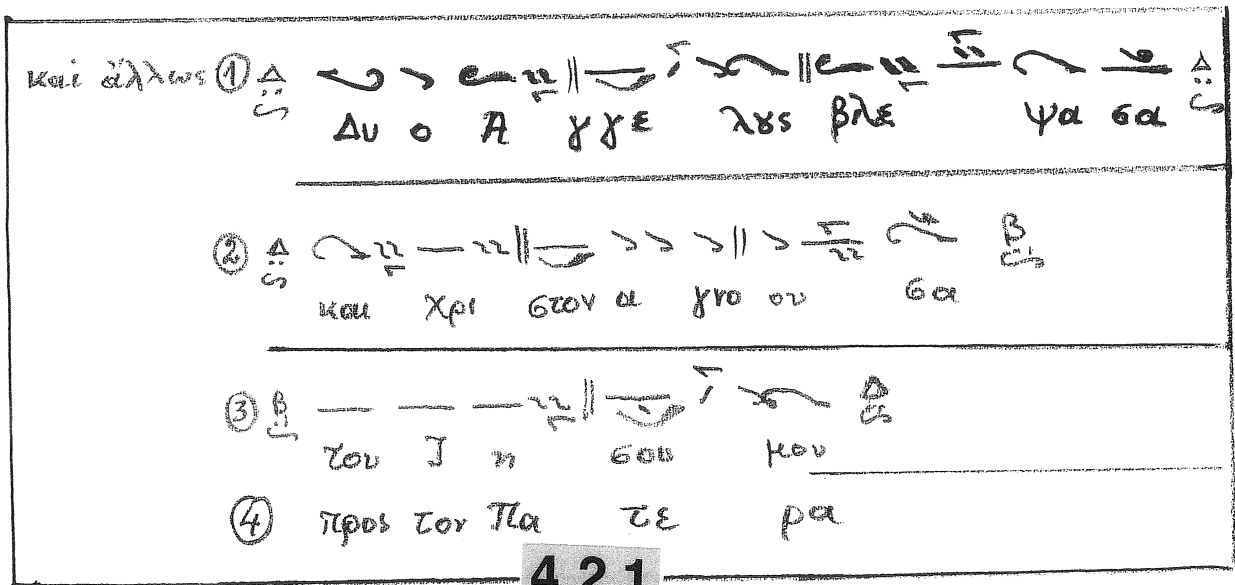 καὶ ἄλλως ① Δ
Δυ ο Α γ γ ε λȣς βλε ψα σα Δ
② Δ Β
και χρι στον α γνο ου σα
③ Β Δ
του Ι η σου μου
④ προς τον Πα τε ρα
421